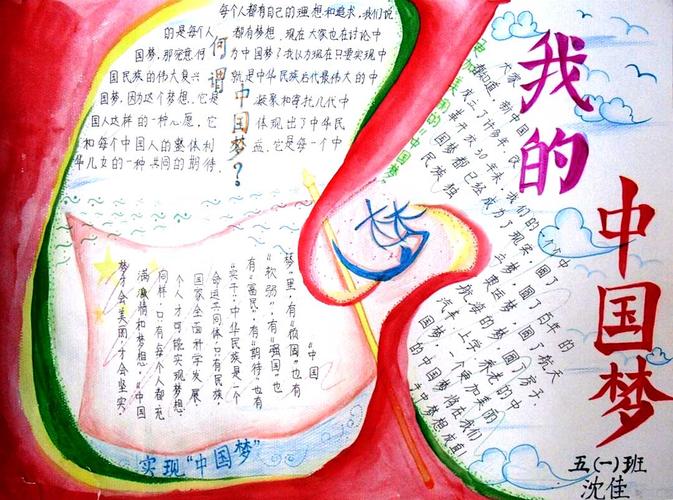 我的
中国梦
五(一)班
沈佳
何谓中国梦?
每个人都有自己的理想和追求,我们说
的是每个人都有梦想。现在大家也在讨论中
国梦,那究竟何为中国梦?我以为现在只要实现中
国民族的伟大复兴就是中华民族后代最伟大的中
国梦,因为这个梦想,它是凝聚和寄托几代中
国人这样的一种心愿,它体现出了中华民
和每个中国人的整体利益,它是每一个中
华儿女的一种共同的期待.
梦
大家都知道,新中国
成立了许多年,改
革开放30年来,我们的
国梦都已经成为了现实,圆了
民族独立梦,圆了百年的
奥运梦,圆了航天
航母的梦,圆了房子
汽车、上学、养老的中
国梦,一个更加美丽
的中国梦将在我们
手中梦想成真!
"中国
梦"里,有"彼国"也有
"软弱",有"强国"也
有"富民",有"期待"也有
"实干"中华民族是一个
命运共同体,只有民族,
国家全面科学发展,
个人才可能实现梦想.
同样,只有每个人都充
满激情和梦想,"中国
梦"才会美丽,才会坚实.
实现"中国梦"